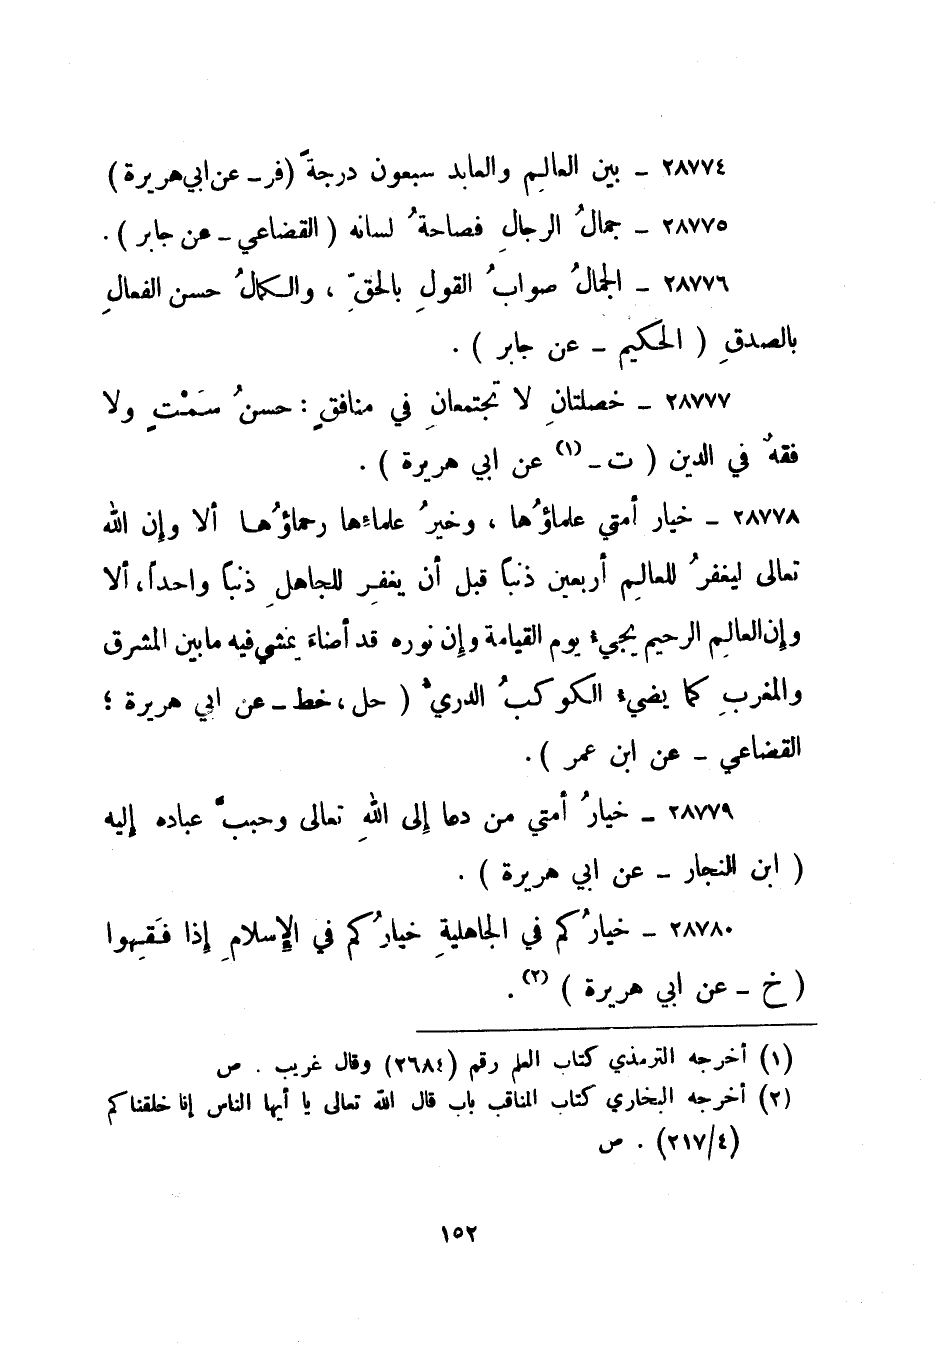 ٢٨٧٧٤ ـ بين العالِم والعابد سبعون درجةً (فر ـ عن ابي هريرة)
٢٨٧٧٥ ـ جمالُ الرجالِ فصاحةُ لسانه ( القضاعي ـ عن جابر ) .
٢٨٧٧٦ ـ الجمالُ صوابُ القولِ بالحقِّ ، والكمالُ حسن الفعالِ
بالصدقِ ( الحكيم ـ عن جابر ) .
٢٨٧٧٧ ـ خصلتانِ لا تجتمعانِ في منافقٍ : حسنُ سَمْتٍ ولا
فقهٌ في الدين ( ت ـ (١) عن ابي هريرة ) .
٢٨٧٧٨ ـ خيار أمتي علماؤُها ، وخيرُ علماءِها رحماؤُها ألا وإن الله
تعالى ليغفرُ للعالِم أربعين ذنباً قبل أن يغفِر للجاهلِ ذنباً واحداً، ألا
وإن العالِم الرحيم يجيء يوم القيامة وإن نوره قد أضاءَ يمشي فيه مابين المشرق
والمغربِ كما يضيء الكوكبُ الدري ( حل، خط ـ عن ابي هريرة ؛
القضاعي ـ عن ابن عمر ) .
٢٨٧٧٩ ـ خيارُ أمتي من دعا إلى اللهِ تعالى وحببَّ عباده إليه
( ابن النجار ـ عن ابي هريرة ) .
٢٨٧٨٠ ـ خيارُكم في الجاهليةِ خيارُكم في الإسلامِ إذا فَقِهوا
( خ ـ عن ابي هريرة ) (٢) .
(١) أخرجه الترمذي كتاب العلم رقم (٢٦٨٤) وقال غريب . ص
(٢) أخرجه البخاري كتاب المناقب باب قال الله تعالى يا أيها الناس إنا خلقناكم
(٢١٧/٤) . ص
١٥٢